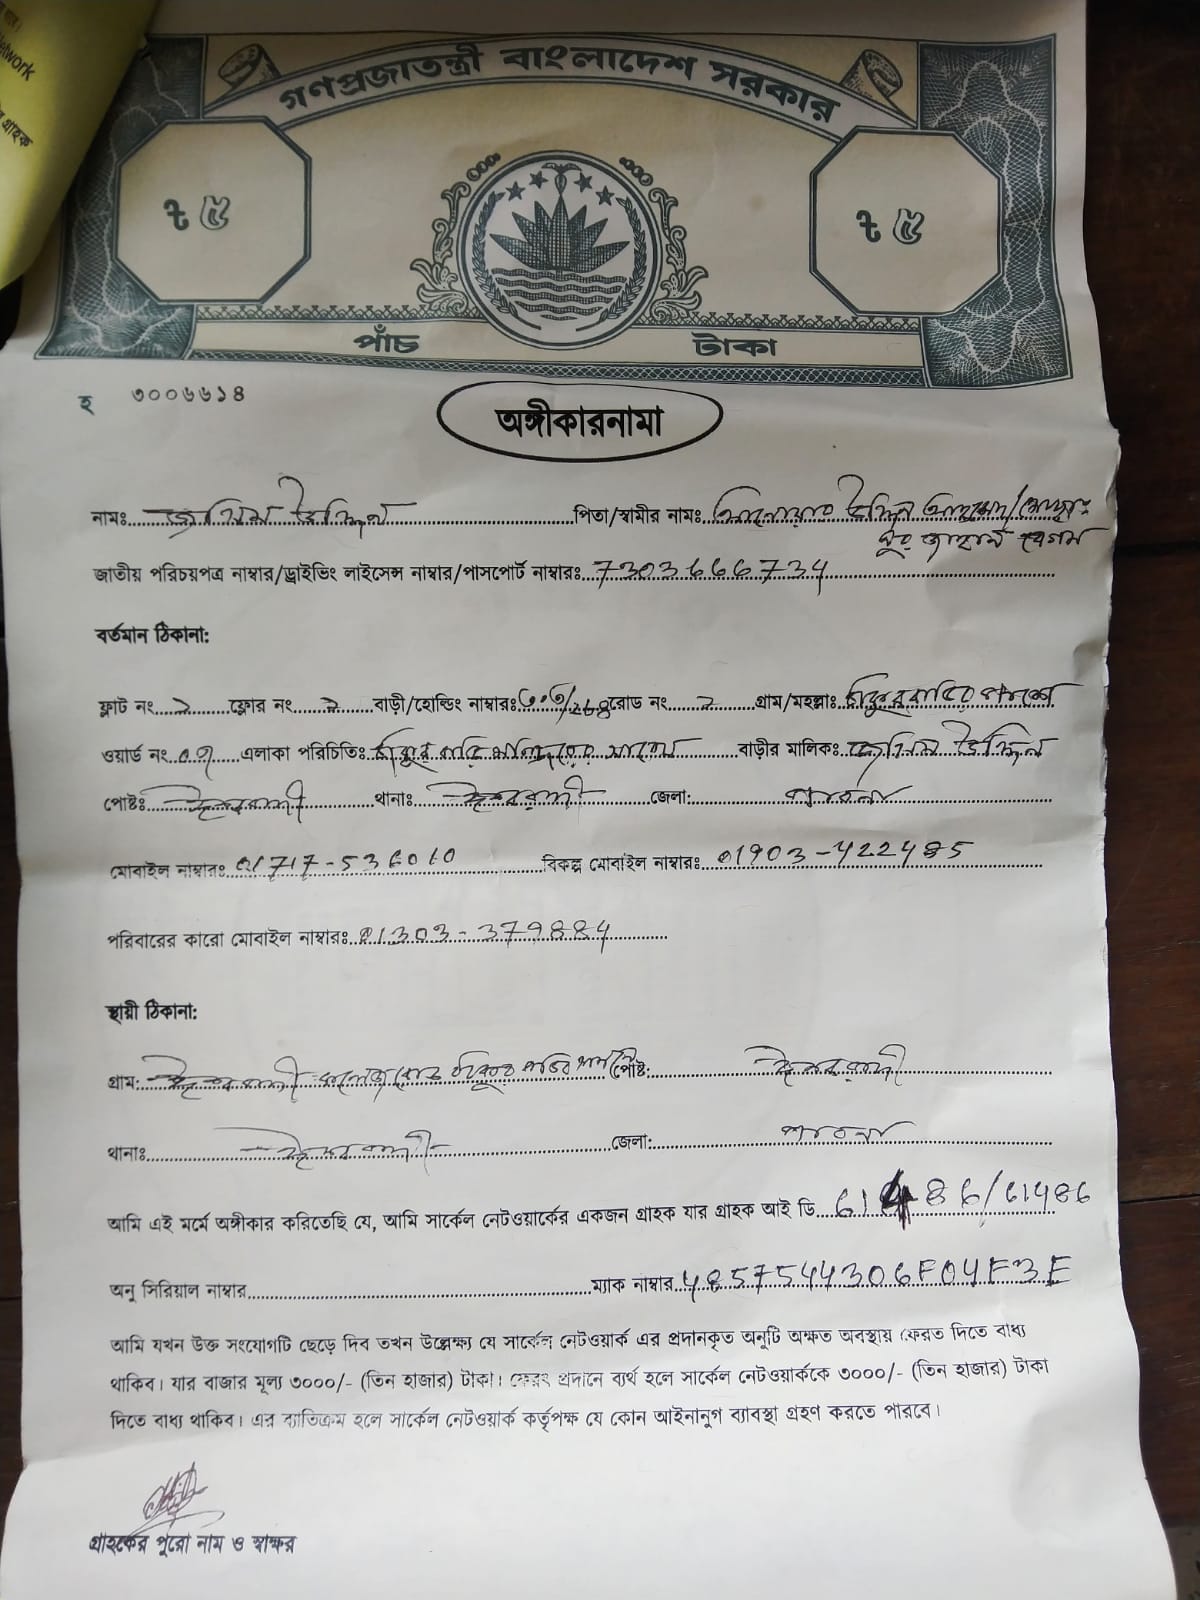 Network
গ্রাহক
গণপ্রজাতন্ত্রী বাংলাদেশ সরকার
৳ ৫ ৳ ৫
পাঁচ টাকা
হ ৩০০৬৬১৪
অঙ্গীকারনামা
নামঃ জসিম উদ্দিন পিতা/স্বামীর নামঃ আনোয়ার উদ্দিন
নুর জাহান বেগম
জাতীয় পরিচয়পত্র নাম্বার/ড্রাইভিং লাইসেন্স নাম্বার/পাসপোর্ট নাম্বারঃ 7303666734
বর্তমান ঠিকানা:
ফ্লাট নং ফ্লোর নং বাড়ী/হোল্ডিং নাম্বারঃ রোড নং গ্রাম/মহল্লাঃ ঠাকুরবাড়ির পাশে
ওয়ার্ড নং এলাকা পরিচিতিঃ ঠাকুর বাড়ি মন্দিরের সামনে বাড়ীর মালিকঃ জসিম উদ্দিন
পোষ্টঃ ঈশ্বরদী থানাঃ ঈশ্বরদী জেলা: পাবনা
মোবাইল নাম্বারঃ 01717-536010 বিকল্প মোবাইল নাম্বারঃ 01903-422485
পরিবারের কারো মোবাইল নাম্বারঃ 01303-379884
স্থায়ী ঠিকানা:
গ্রাম: ঈশ্বরদী কলেজ রোড ঠাকুর বাড়ির পাশে পোষ্ট: ঈশ্বরদী
থানাঃ ঈশ্বরদী জেলা: পাবনা
আমি এই মর্মে অঙ্গীকার করিতেছি যে, আমি সার্কেল নেটওয়ার্কের একজন গ্রাহক যার গ্রাহক আই ডি 61486/61486
অনু সিরিয়াল নাম্বার ম্যাক নাম্বার 4857544306F04F3E
আমি যখন উক্ত সংযোগটি ছেড়ে দিব তখন উল্লেক্ষ্য যে সার্কেল নেটওয়ার্ক এর প্রদানকৃত অনুটি অক্ষত অবস্থায় ফেরত দিতে বাধ্য
থাকিব। যার বাজার মূল্য ৩০০০/- (তিন হাজার) টাকা। ফেরৎ প্রদানে ব্যর্থ হলে সার্কেল নেটওয়ার্ককে ৩০০০/- (তিন হাজার) টাকা
দিতে বাধ্য থাকিব। এর ব্যতিক্রম হলে সার্কেল নেটওয়ার্ক কর্তৃপক্ষ যে কোন আইনানুগ ব্যাবস্থা গ্রহণ করতে পারবে।
গ্রাহকের পুরো নাম ও স্বাক্ষর